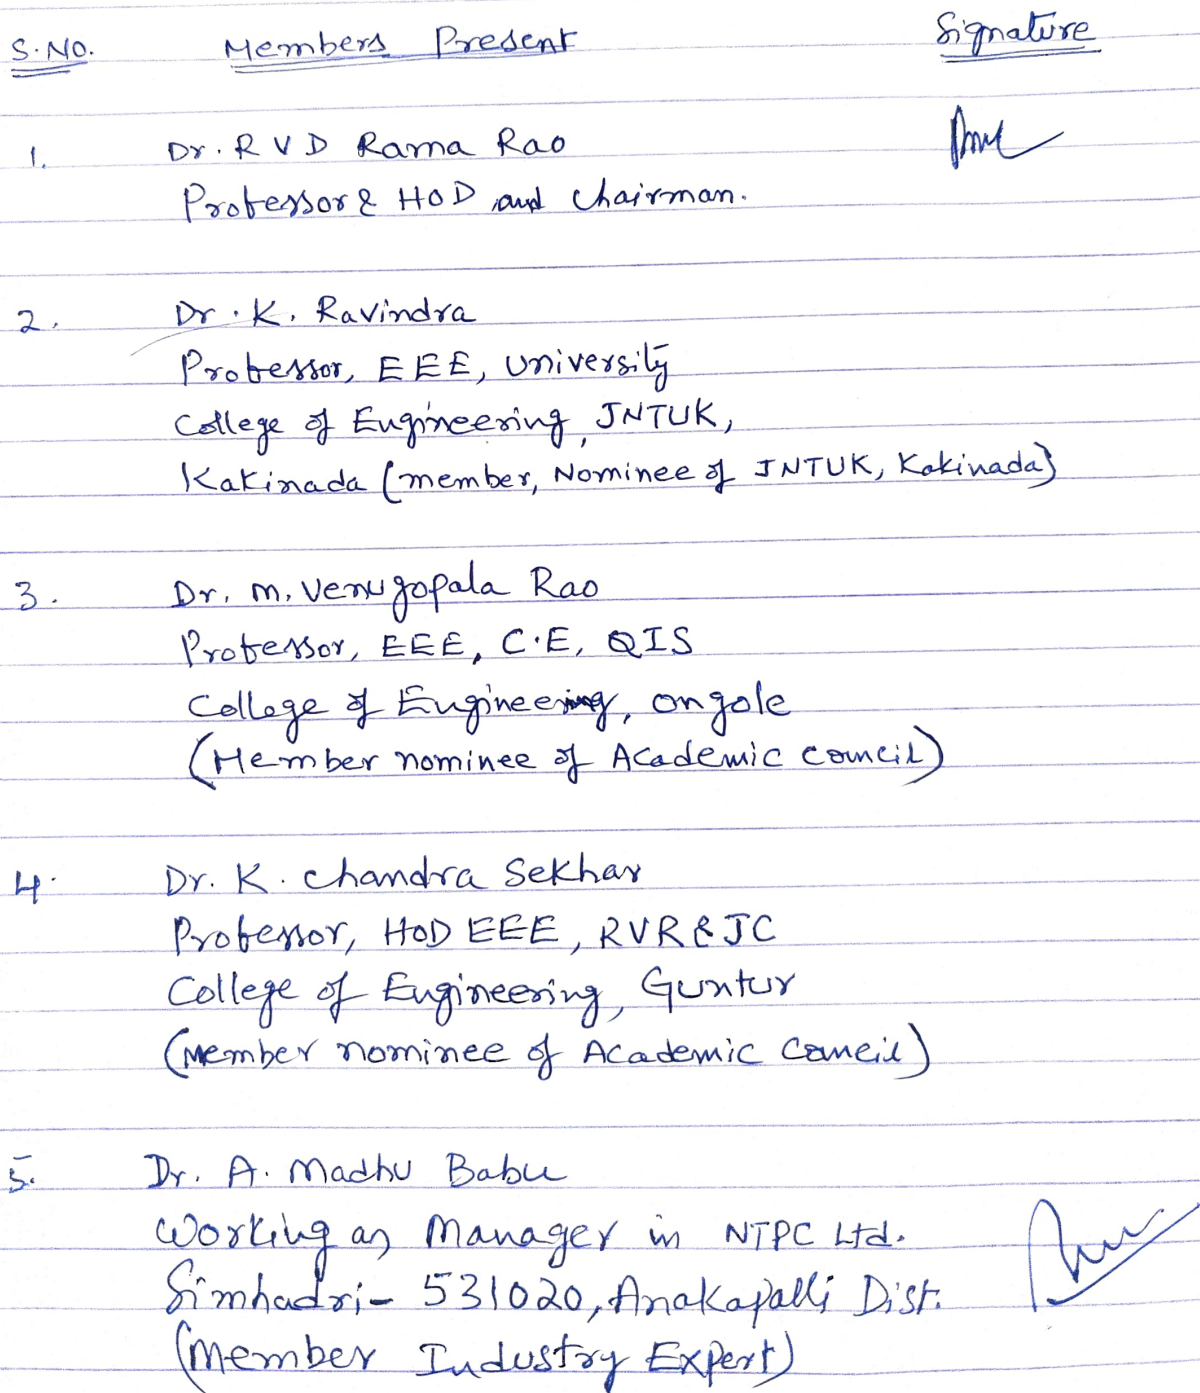 S.NO. Members Present Signature
1. Dr. R V D Rama Rao
Professor & HOD and Chairman.
2. Dr. K. Ravindra
Professor, EEE, University
College of Engineering, JNTUK,
Kakinada (member, Nominee of JNTUK, Kakinada)
3. Dr. M. Venugopala Rao
Professor, EEE, C.E, QIS
College of Engineering, Ongole
(Member nominee of Academic Council)
4. Dr. K. Chandra Sekhar
Professor, HOD EEE, RVR & JC
College of Engineering, Guntur
(Member nominee of Academic Council)
5. Dr. A. Madhu Babu
Working as Manager in NTPC Ltd.
Simhadri- 531020, Anakapalli Dist.
(Member Industry Expert)